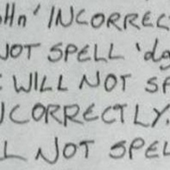 oHn' INCORREC
NOT SPELL 'do
E WILL NOT SP
NCORRECTLY.
LL NOT SPEL